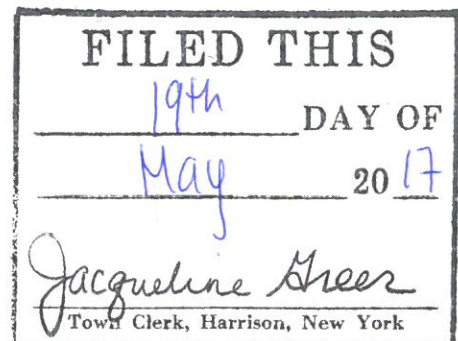 FILED THIS
19th DAY OF
May 20 17
Jacqueline Greer
Town Clerk, Harrison, New York